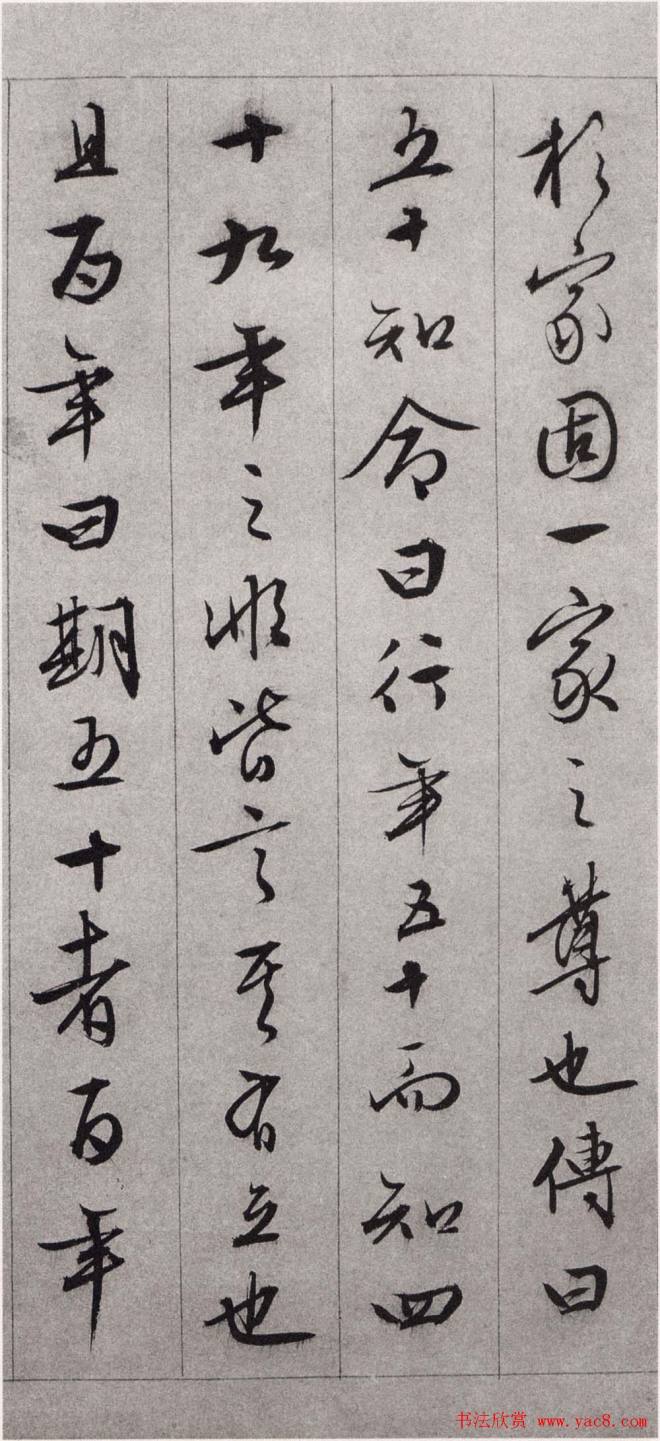 於家固一家之尊也傳曰
五十知命曰行年五十而知四
十九年之非皆言其有立也
且百年曰期五十者百年
书法欣赏 www.yac8.com